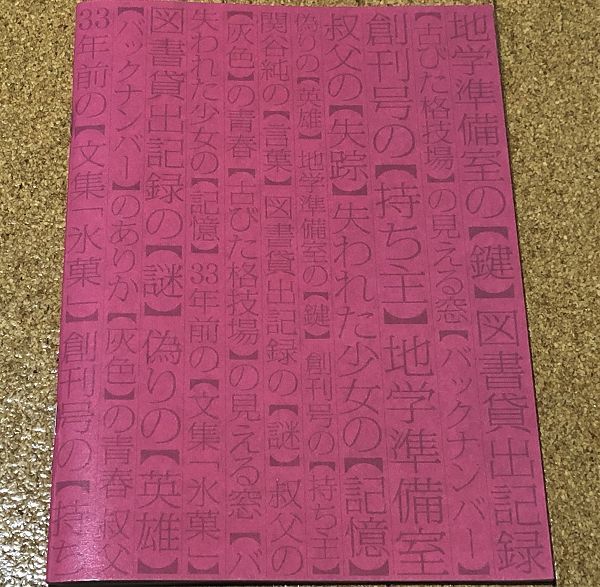 地学準備室の【鍵】図書貸出記録
【古びた格技場】の見える窓【バックナンバー】
創刊号の【持ち主】地学準備室
叔父の【失踪】失われた少女の【記憶】
偽りの【英雄】地学準備室の【鍵】創刊号の【持ち主】
関谷純の【言葉】図書貸出記録の【謎】叔父の
【灰色】の青春【古びた格技場】の見える窓【バ
失われた少女の【記憶】33年前の【文集「氷菓」
図書貸出記録の【謎】偽りの【英雄】
【バックナンバー】のありか【灰色】の青春叔父
33年前の【文集「氷菓」】創刊号の【持ち